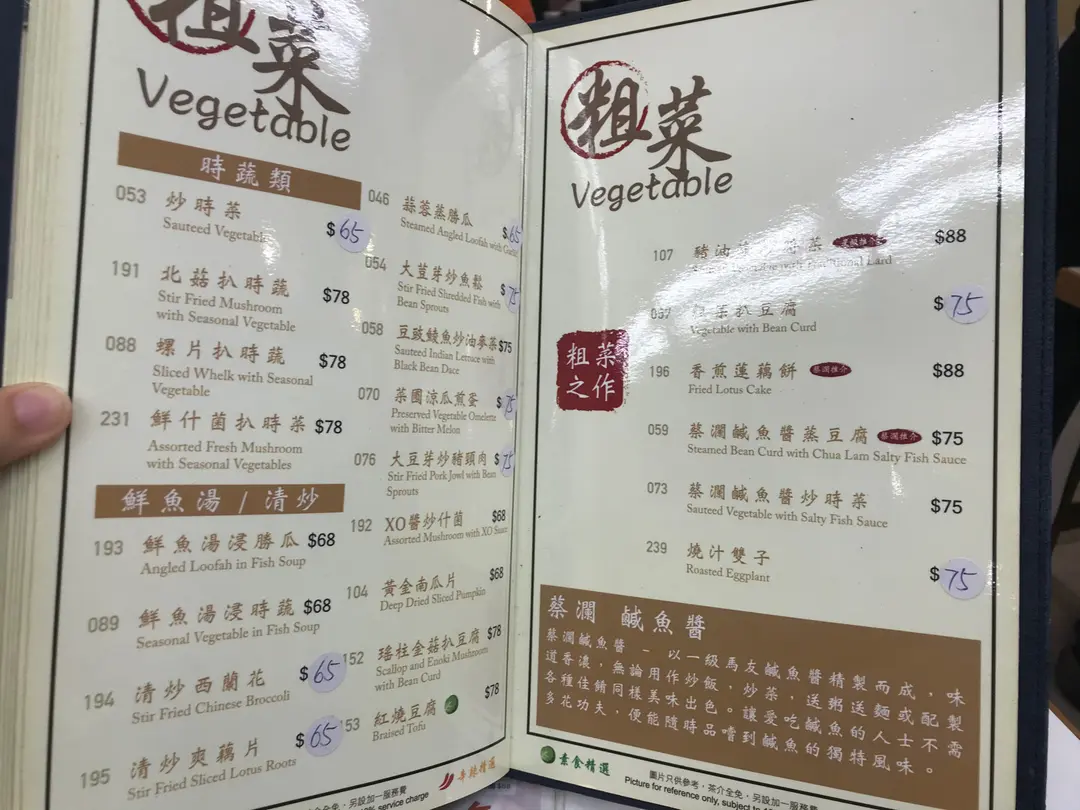 粗菜
Vegetable
時蔬類
053 炒時菜 $65
Sauteed Vegetable
191 北菇扒時蔬 $78
Stir Fried Mushroom
with Seasonal Vegetable
088 螺片扒時蔬 $78
Sliced Whelk with Seasonal
Vegetable
231 鮮什菌扒時菜 $78
Assorted Fresh Mushroom
with Seasonal Vegetables
鮮魚湯 / 清炒
193 鮮魚湯浸勝瓜 $68
Angled Loofah in Fish Soup
089 鮮魚湯浸時蔬 $68
Seasonal Vegetable in Fish Soup
194 清炒西蘭花 $65
Stir Fried Chinese Broccoli
195 清炒爽藕片 $65
Stir Fried Sliced Lotus Roots
046 蒜蓉蒸勝瓜 $65
Steamed Angled Loofah with Garlic
054 大荳芽炒魚鬆 $75
Stir Fried Shredded Fish with
Bean Sprouts
058 豆豉鯪魚炒油麥菜 $75
Sauteed Indian Lettuce with
Black Bean Dace
070 菜圃涼瓜煎蛋 $75
Preserved Vegetable Omelette
with Bitter Melon
076 大豆芽炒豬頸肉 $75
Stir Fried Pork Jowl with Bean
Sprouts
192 XO醬炒什菌 $68
Assorted Mushroom with XO Sauce
104 黃金南瓜片 $68
Deep Dried Sliced Pumpkin
152 瑤柱金菇扒豆腐 $78
Scallop and Enoki Mushroom
with Bean Curd
153 紅燒豆腐 $78
Braised Tofu
辛辣精選
另設加一服務費
service charge
粗菜
Vegetable
107 豬油 時菜 $88
Traditional Lard
粗菜扒豆腐 $75
Vegetable with Bean Curd
粗菜
之作
196 香煎蓮藕餅 蔡瀾推介 $88
Fried Lotus Cake
059 蔡瀾鹹魚醬蒸豆腐 蔡瀾推介 $75
Steamed Bean Curd with Chua Lam Salty Fish Sauce
073 蔡瀾鹹魚醬炒時菜 $75
Sauteed Vegetable with Salty Fish Sauce
239 燒汁雙子 $75
Roasted Eggplant
蔡瀾 鹹魚醬
蔡瀾鹹魚醬 - 以一級馬友鹹魚醬精製而成，味
道香濃，無論用作炒飯，炒菜，送粥送麵或配製
各種佳餚同樣美味出色。讓愛吃鹹魚的人士不需
多花功夫，便能隨時品嚐到鹹魚的獨特風味。
素食精選
圖片只供參考，茶介全免，另設加一服務費
Picture for reference only, subject to